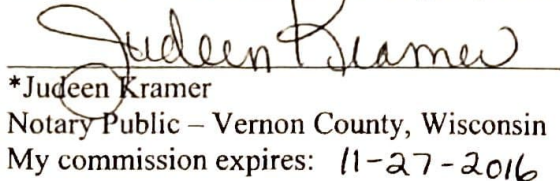 Judeen Kramer
*Judeen Kramer
Notary Public – Vernon County, Wisconsin
My commission expires: 11-27-2016